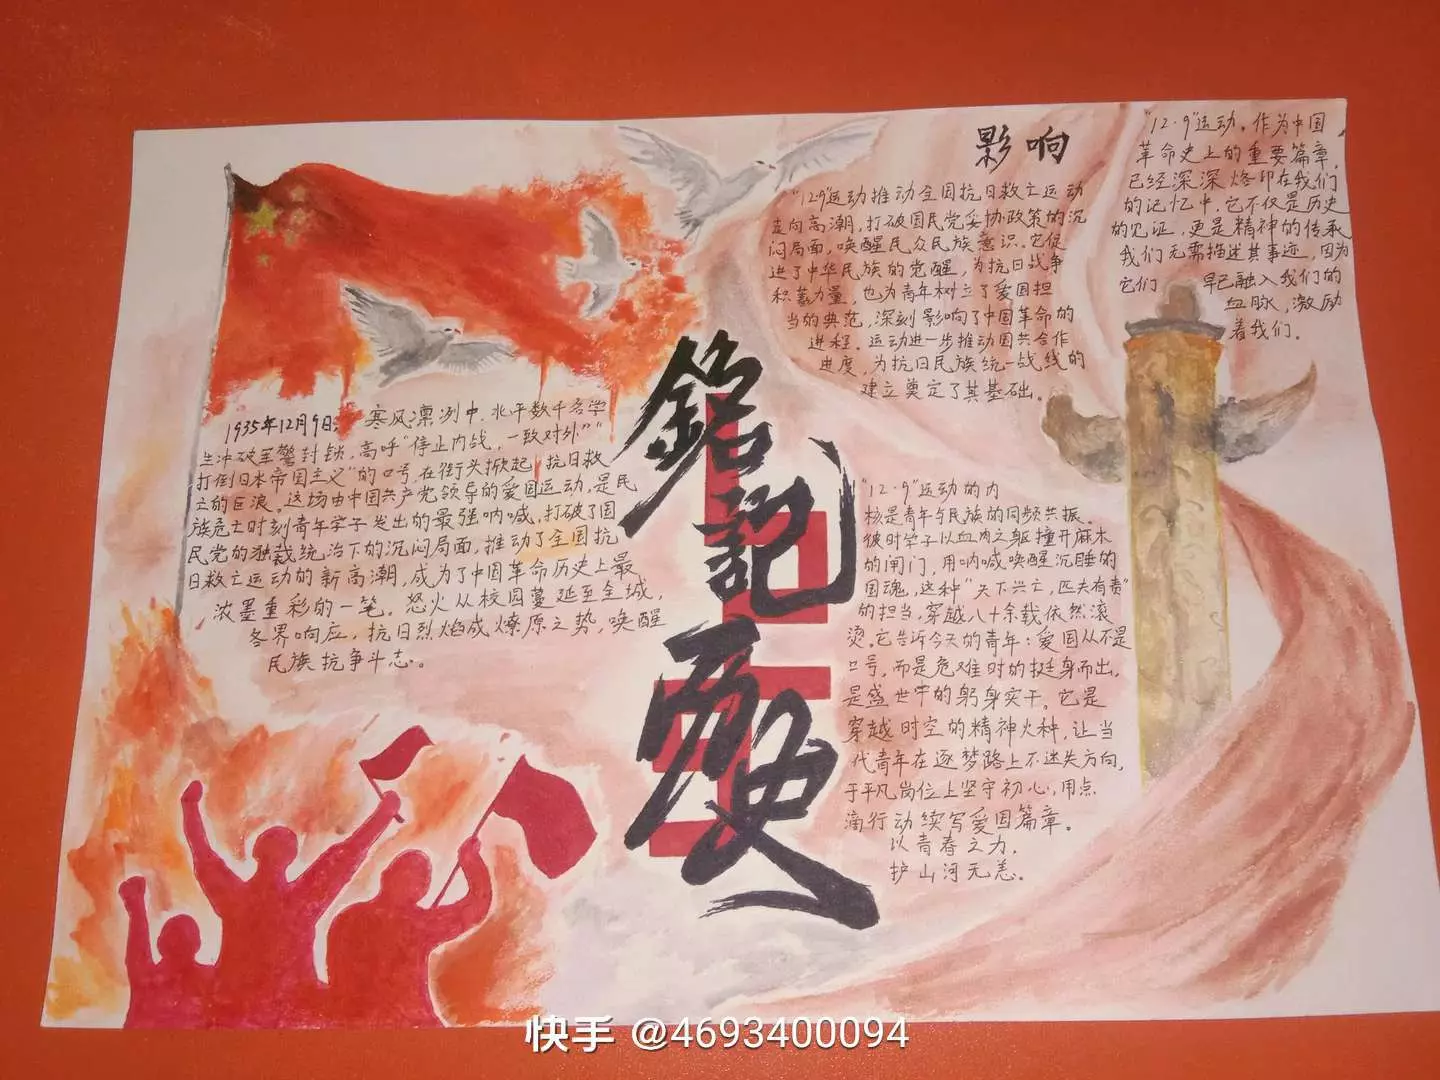 铭记历史
1935年12月9日，寒风凛冽中，北平数千名学
生冲破军警封锁，高呼“停止内战，一致对外”“
打倒日本帝国主义”的口号，在街头掀起抗日救
亡的巨浪。这场由中国共产党领导的爱国运动，是民
族危亡时刻青年学子发出的最强呐喊，打破了国
民党的独裁统治下的沉闷局面，推动了全国抗
日救亡运动的新高潮，成为了中国革命历史上最
浓墨重彩的一笔。怒火从校园蔓延至全城，
各界响应，抗日烈焰成燎原之势，唤醒
民族抗争斗志。
影响
“12·9”运动推动全国抗日救亡运动
走向高潮，打破国民党妥协政策的沉
闷局面，唤醒民众民族意识。它促
进了中华民族的觉醒，为抗日战争
积蓄力量，也为青年树立了爱国担
当的典范，深刻影响了中国革命的
进程。运动进一步推动国共合作
进度，为抗日民族统一战线的
建立奠定了其基础。
“12·9”运动，作为中国
革命史上的重要篇章，
已经深深烙印在我们
的记忆中，它不仅是历史
的见证，更是精神的传承
我们无需描述其事迹，因为
它们 早已融入我们的
血脉，激励
着我们。
“12·9”运动的内
核是青年与民族的同频共振。
彼时学子以血肉之躯撞开麻木
的闸门，用呐喊唤醒沉睡的
国魂，这种“天下兴亡，匹夫有责”
的担当，穿越八十余载依然滚
烫。它告诉今天的青年：爱国从不是
口号，而是危难时的挺身而出，
是盛世中的躬身实干。它是
穿越时空的精神火种，让当
代青年在逐梦路上不迷失方向，
于平凡岗位上坚守初心，用点
滴行动续写爱国篇章。
以青春之力，
护山河无恙。
快手 @4693400094